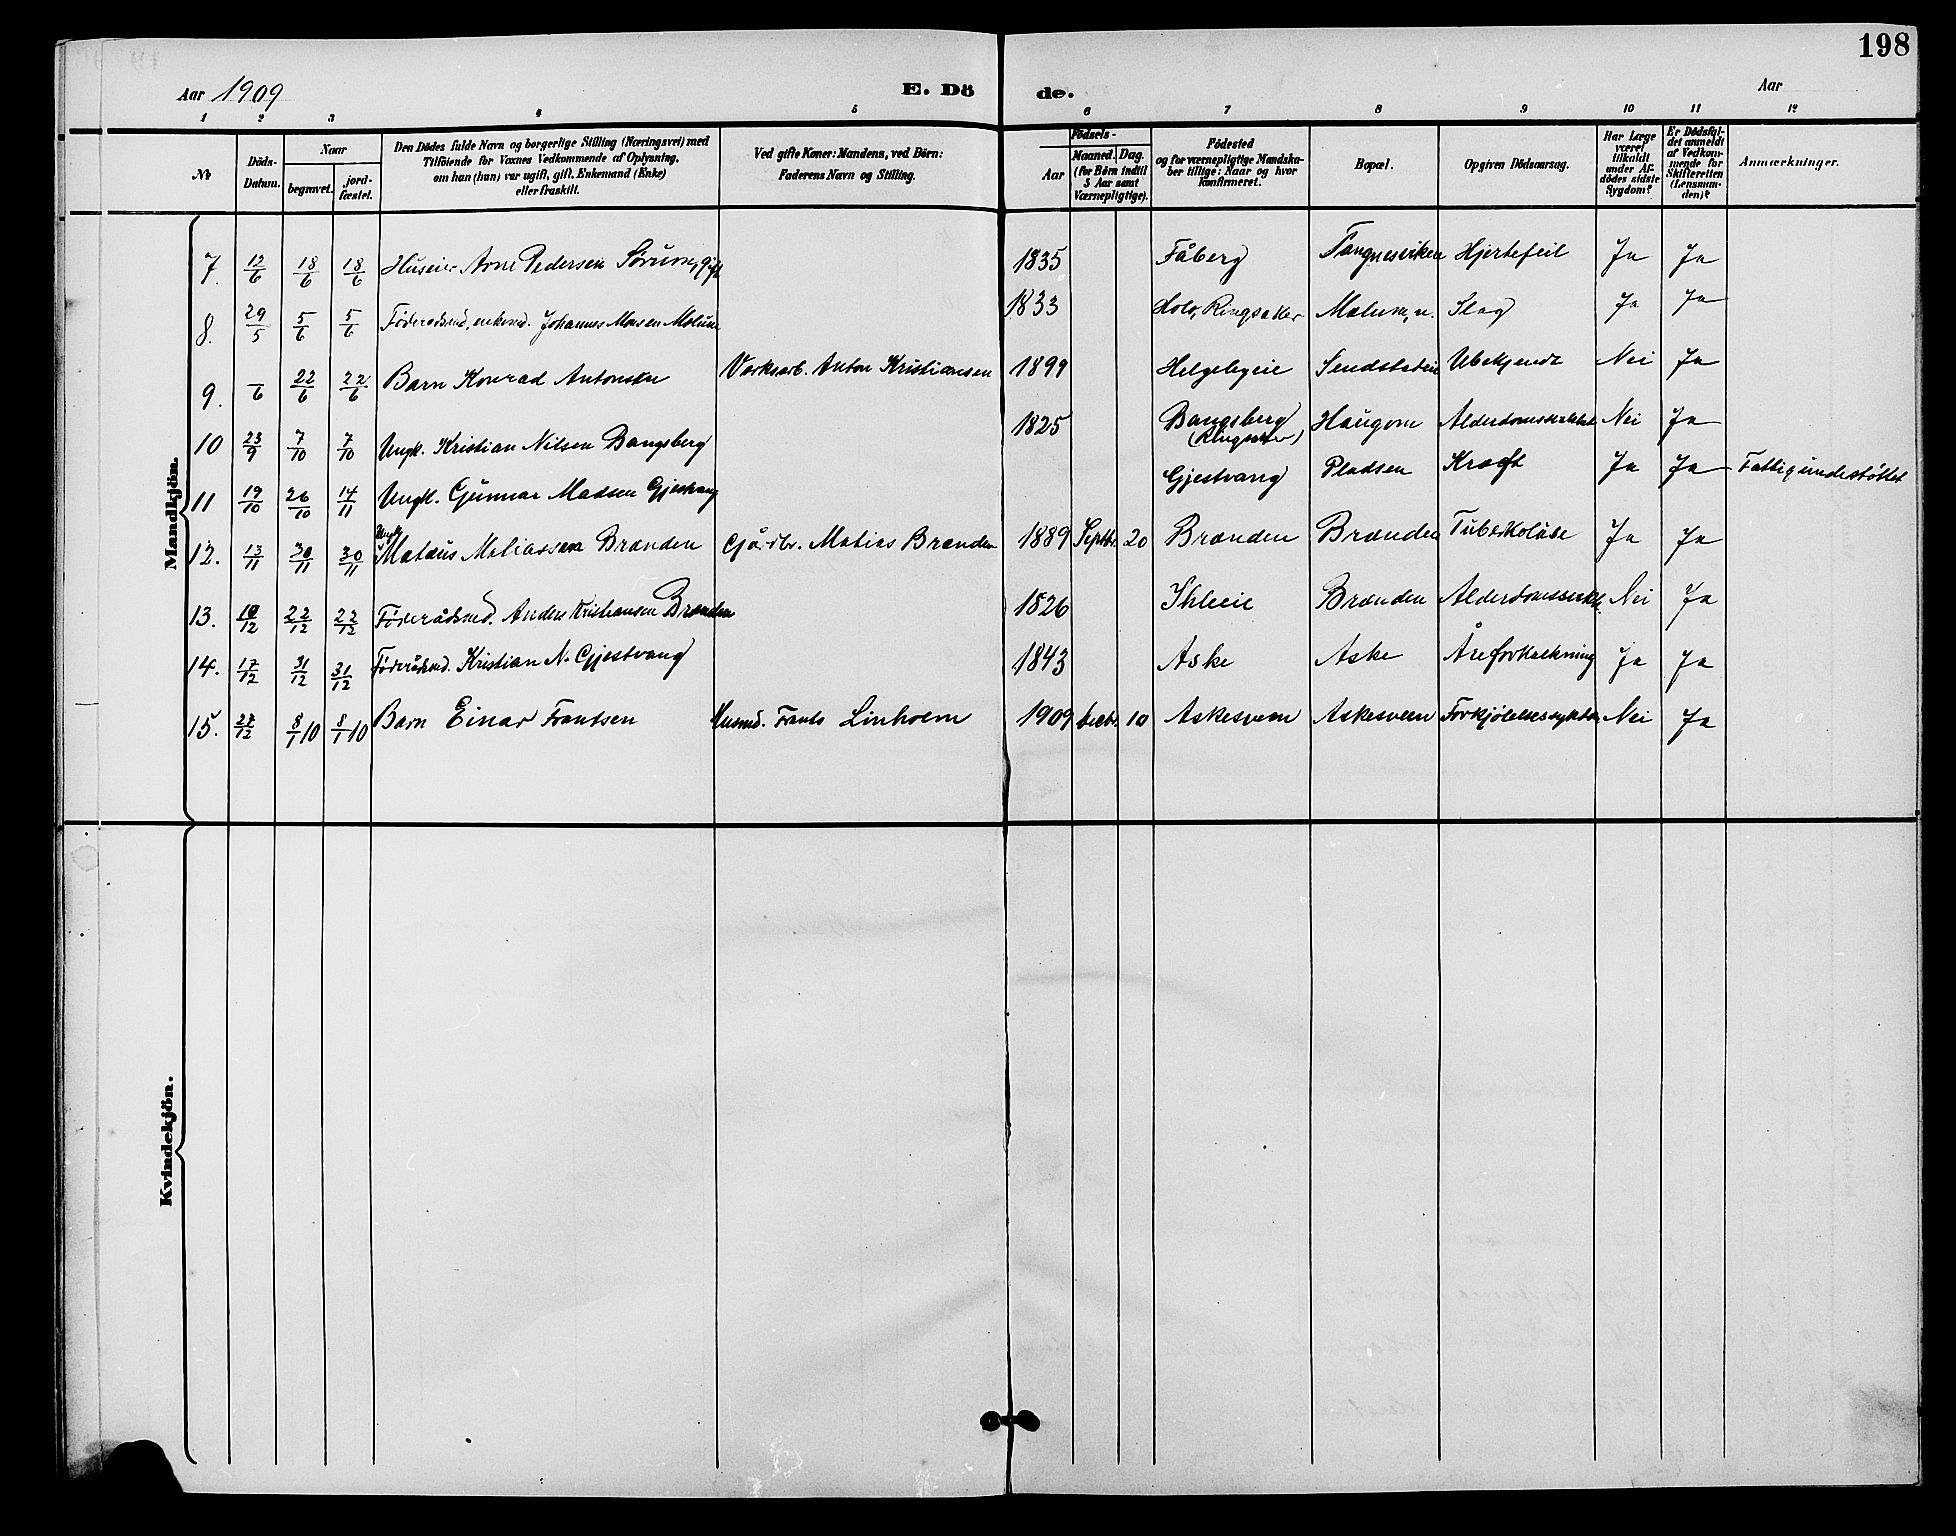 198
Aar 1909
E. Dö de.
Aar
1 2 3 4 5 6 7 8 9 10 11 12
No
Döds-Datum.
Naar
begravet.
jord-fæstet.
Den Dödes fulde Navn og borgerlige Stilling (Næringsvei) med
Tilföiende for Voxnes Vedkommende af Oplysning,
om han (hun) var ugift, gift, Enkemand (Enke)
eller fraskilt.
Ved gifte Koner: Mandens, ved Börn:
Faderens Navn og Stilling.
Födsels-
Aar
Maaned. Dag.
(for Börn indtil
5 Aar samt
Værnepligtige).
Födested
og for værnepligtige Mandska-
ber tillige: Naar og hvor
konfirmeret.
Bopæl.
Opgiven Dödsaarsag.
Har Læge
været
tilkaldt
under Af-
dödes sidste
Sygdom?
Er Dödsfal-
det anmeldt
af Vedkom-
mende for
Skifteretten
(Lensman-
den)?
Anmærkninger.
Mandkjön.
7. 12/6 18/6 18/6 Huseier Arne Pedersen Sørum, gift 1835 Fåberg Tangnesviken Hjertefeil Ja Ja
8. 29/5 5/6 5/6 Føderådsmd, enkemd. Johannes Monsen Molum 1833 Holo, Ringsaker Molum, n. Slag Ja Ja
9. –/6 22/6 22/6 Barn Konrad Antonsen Verksarb. Anton Kristiansen 1899 Helgebyeie Sendstadeie Ubekjendt Nei Ja
10 23/9 7/10 7/10 Ungk. Kristian Nilsen Bangsberg 1825 Bangsberg (Ringsaker) Haugom Alderdomssvakhet Nei Ja
11 19/10 26/10 14/11 Ungk. Gunnar Madsen Gjestvang Gjestvang Pladsen Kræft Ja Ja Fattigunderstøttet
12. 13/11 30/11 30/11 Ungk. Mataus Matiassen Brænden Gårdbr. Matias Brænden 1889 Septbr. 20 Brænden Brænden Tuberkoløse Ja Ja
13. 10/12 22/12 22/12 Føderådsmd. Anders Kristiansen Brænden 1826 Ihleeie Brænden Alderdomssvakh. Nei Ja
14. 17/12 31/12 31/12 Føderådsmd. Kristian N. Gjestvang 1843 Aske Aske Åreforkalkning Ja Ja
15. 27/12 8/1 10 8/1 10 Barn Einar Frantsen Husmd. Frants Linholm 1909 Decbr. 10 Askesveen Askesveen Forkjølelsessykdom Nei Ja
Kvindekjön.